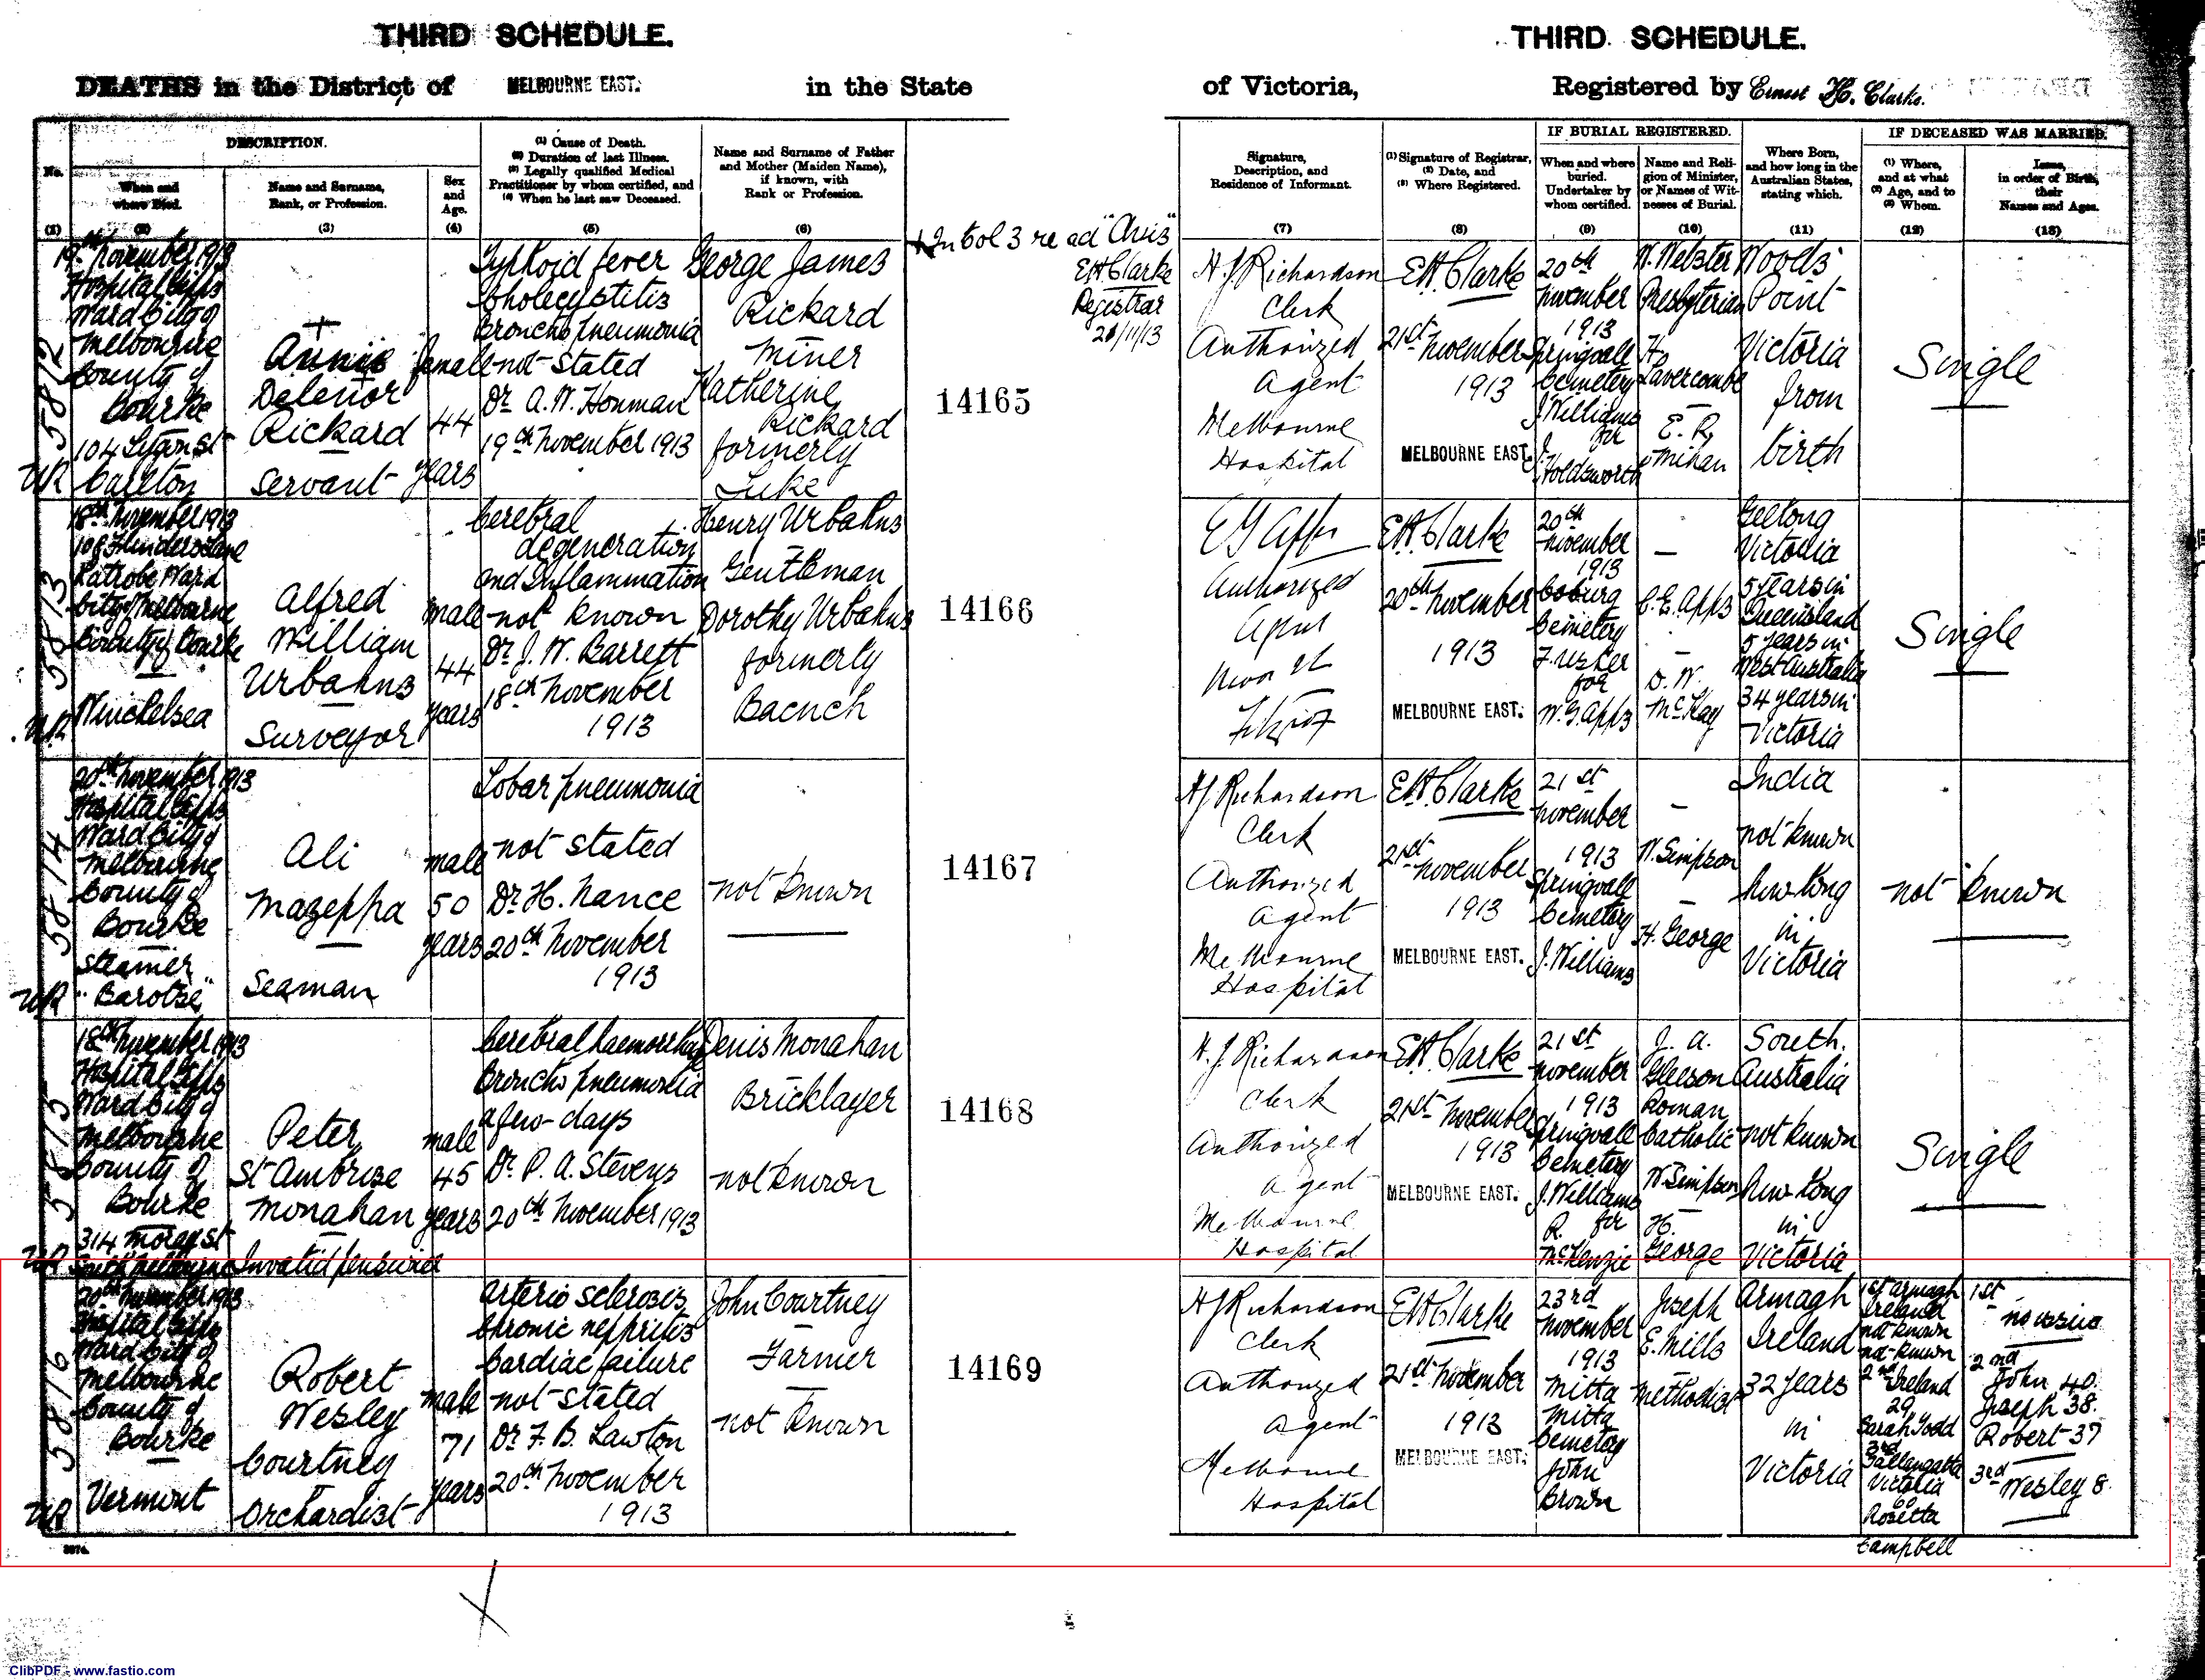 THIRD SCHEDULE.
DEATHS in the District of MELBOURNE EAST. in the State
No.
DESCRIPTION.
When and
where Died.
Name and Surname,
Rank, or Profession.
Sex
and
Age.
(1) Cause of Death.
(2) Duration of last Illness.
(3) Legally qualified Medical
Practitioner by whom certified, and
(4) When he last saw Deceased.
Name and Surname of Father
and Mother (Maiden Name),
if known, with
Rank or Profession.
(1) (2) (3) (4) (5) (6)
5812
19th November 1913
Hospital Gipps
Ward City of
Melbourne
County of
Bourke
104 Lygon St
Carlton
UR
+
Annie
Delenor
Rickard
Servant
female
44
years
Typhoid fever
Cholecystitis
Broncho pneumonia
not stated
Dr A. W. Honman
19th November 1913
George James
Rickard
Miner
Katherine
Rickard
formerly
Luke
14165
+ In Col 3 read "Avis"
EH Clarke
Registrar
21/11/13
5813
18th November 1913
108 Flinders Lane
Latrobe Ward
City of Melbourne
County of Bourke
Winchelsea
UR
Alfred
William
Urbahns
Surveyor
male
44
years
Cerebral
degeneration
and Inflammation
not known
Dr J. W. Barrett
18th November
1913
Henry Urbahns
Gentleman
Dorothy Urbahns
formerly
14166
5814
20th November 1913
Hospital Gipps
Ward City of
Melbourne
County of
Bourke
Steamer
"Barotse"
UR
Ali
Mazeppa
Seaman
male
50
years
Lobar pneumonia
not stated
Dr H. Nance
20th November
1913
not known
14167
5815
18th November 1913
Hospital Gipps
Ward City of
Melbourne
County of
Bourke
314 Moray St
South Melbourne
UR
Peter
St Ambrose
Monahan
Invalid pensioner
male
45
years
Cerebral haemorrhage
Broncho pneumonia
a few days
Dr P. A. Stevens
20th November 1913
Denis Monahan
Bricklayer
not known
14168
5816
20th November 1913
Hospital Gipps
Ward City of
Melbourne
County of
Bourke
Vermont
UR
Robert
Wesley
Courtney
Orchardist
male
71
years
Arterio sclerosis
Chronic nephritis
Cardiac failure
not stated
Dr F. B. Lawton
20th November
1913
John Courtney
Farmer
not known
14169
THIRD SCHEDULE.
of Victoria, Registered by Ernest H. Clarke.
Signature,
Description, and
Residence of Informant.
(1) Signature of Registrar,
(2) Date, and
(3) Where Registered.
IF BURIAL REGISTERED.
When and where
buried.
Undertaker by
whom certified.
Name and Reli-
gion of Minister,
or Names of Wit-
nesses of Burial.
Where Born,
and how long in the
Australian States,
stating which.
IF DECEASED WAS MARRIED.
(1) Where,
and at what
(2) Age, and to
(3) Whom.
Issue,
in order of Birth,
their
Names and Ages.
(7) (8) (9) (10) (11) (12) (13)
H J Richardson
Clerk
Authorized
Agent
Melbourne
Hospital
EH. Clarke
21st November
1913
MELBOURNE EAST.
20th
November
1913
Springvale
Cemetery
J. Williams
for
J.
Holdsworth
W. Webster
Presbyterian
H.
Lavercombe
E. R.
Minan
Woods
Point
Victoria
from
birth
Single
Authorized
Agent
EH. Clarke
20th November
1913
MELBOURNE EAST.
20th
November
1913
Coburg
Cemetery
for
W. G. Apps
C. E. Apps
D. W.
McKay
Geelong
Victoria
5 years in
Queensland
5 years in
West Australia
34 years in
Victoria
Single
H J Richardson
Clerk
Authorized
Agent
Melbourne
Hospital
EH. Clarke
21st November
1913
MELBOURNE EAST.
21st
November
1913
Springvale
Cemetery
J. Williams
W. Simpson
H. George
India
not known
how long
in
Victoria
not known
H. J. Richardson
Clerk
Authorized
Agent
Melbourne
Hospital
EH. Clarke
21st November
1913
MELBOURNE EAST.
21st
November
1913
Springvale
Cemetery
J. Williams
for
R.
McKenzie
J. A.
Gleeson
Roman
Catholic
W Simpson
H.
George
South
Australia
not known
how long
in
Victoria
Single
H J Richardson
Clerk
Authorized
Agent
Melbourne
Hospital
EH. Clarke
21st November
1913
MELBOURNE EAST.
23rd
November
1913
Mitta
Mitta
Cemetery
John
Brown
Joseph
E. Mills
Methodist
Armagh
Ireland
32 years
in
Victoria
1st Armagh
Ireland
not known
not known
2nd Ireland
29
Sarah Todd
3rd
Tallangatta
Victoria
60
Rosetta
Campbell
1st
no issue
2nd
John 40.
Joseph 38.
Robert 37
3rd
Wesley 8.
ClibPDF - www.fastio.com